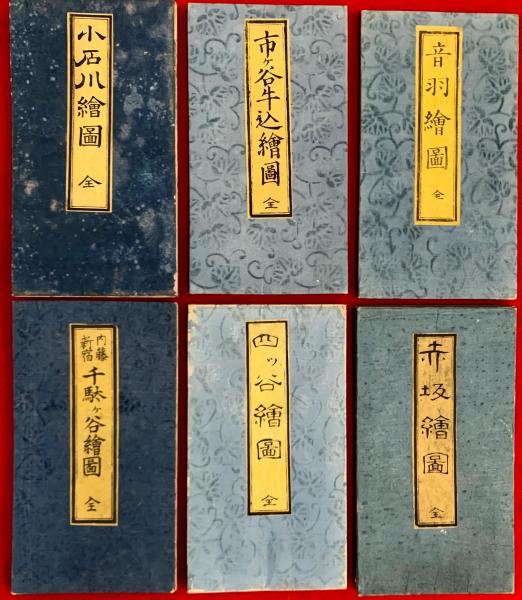 小石川繪圖 全
市ヶ谷牛込繪圖 全
音羽繪圖 全
内藤新宿 千駄ヶ谷繪圖 全
四ッ谷繪圖 全
赤坂繪圖 全